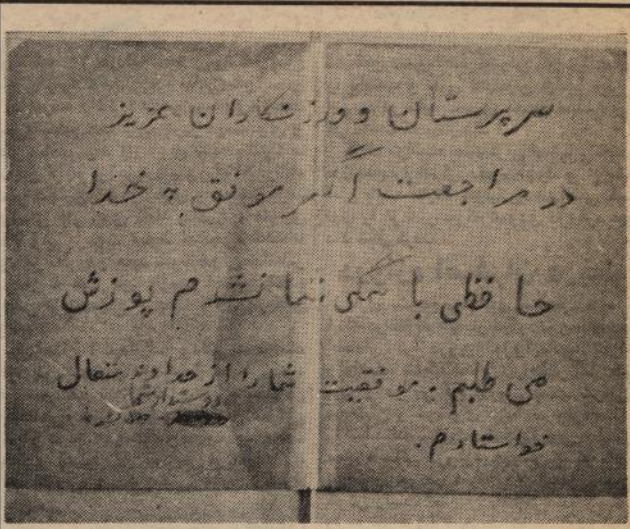 سرپرستان و ورزشکاران عزیز
در مراجعت اگر موفق به خدا
حافظی با همگی شما نشدم پوزش
می طلبم. موفقیت شما را از خداوند متعال
دوستدار شما
خواستارم.